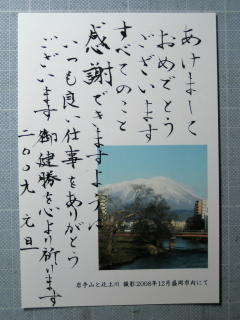 あけまして
おめでとう
ございます
すべてのこと
感謝できますように
いつも良い仕事をありがとう
ございます 御健勝を心より祈います
二〇〇九 元旦
岩手山と北上川 撮影2008年12月盛岡市内にて